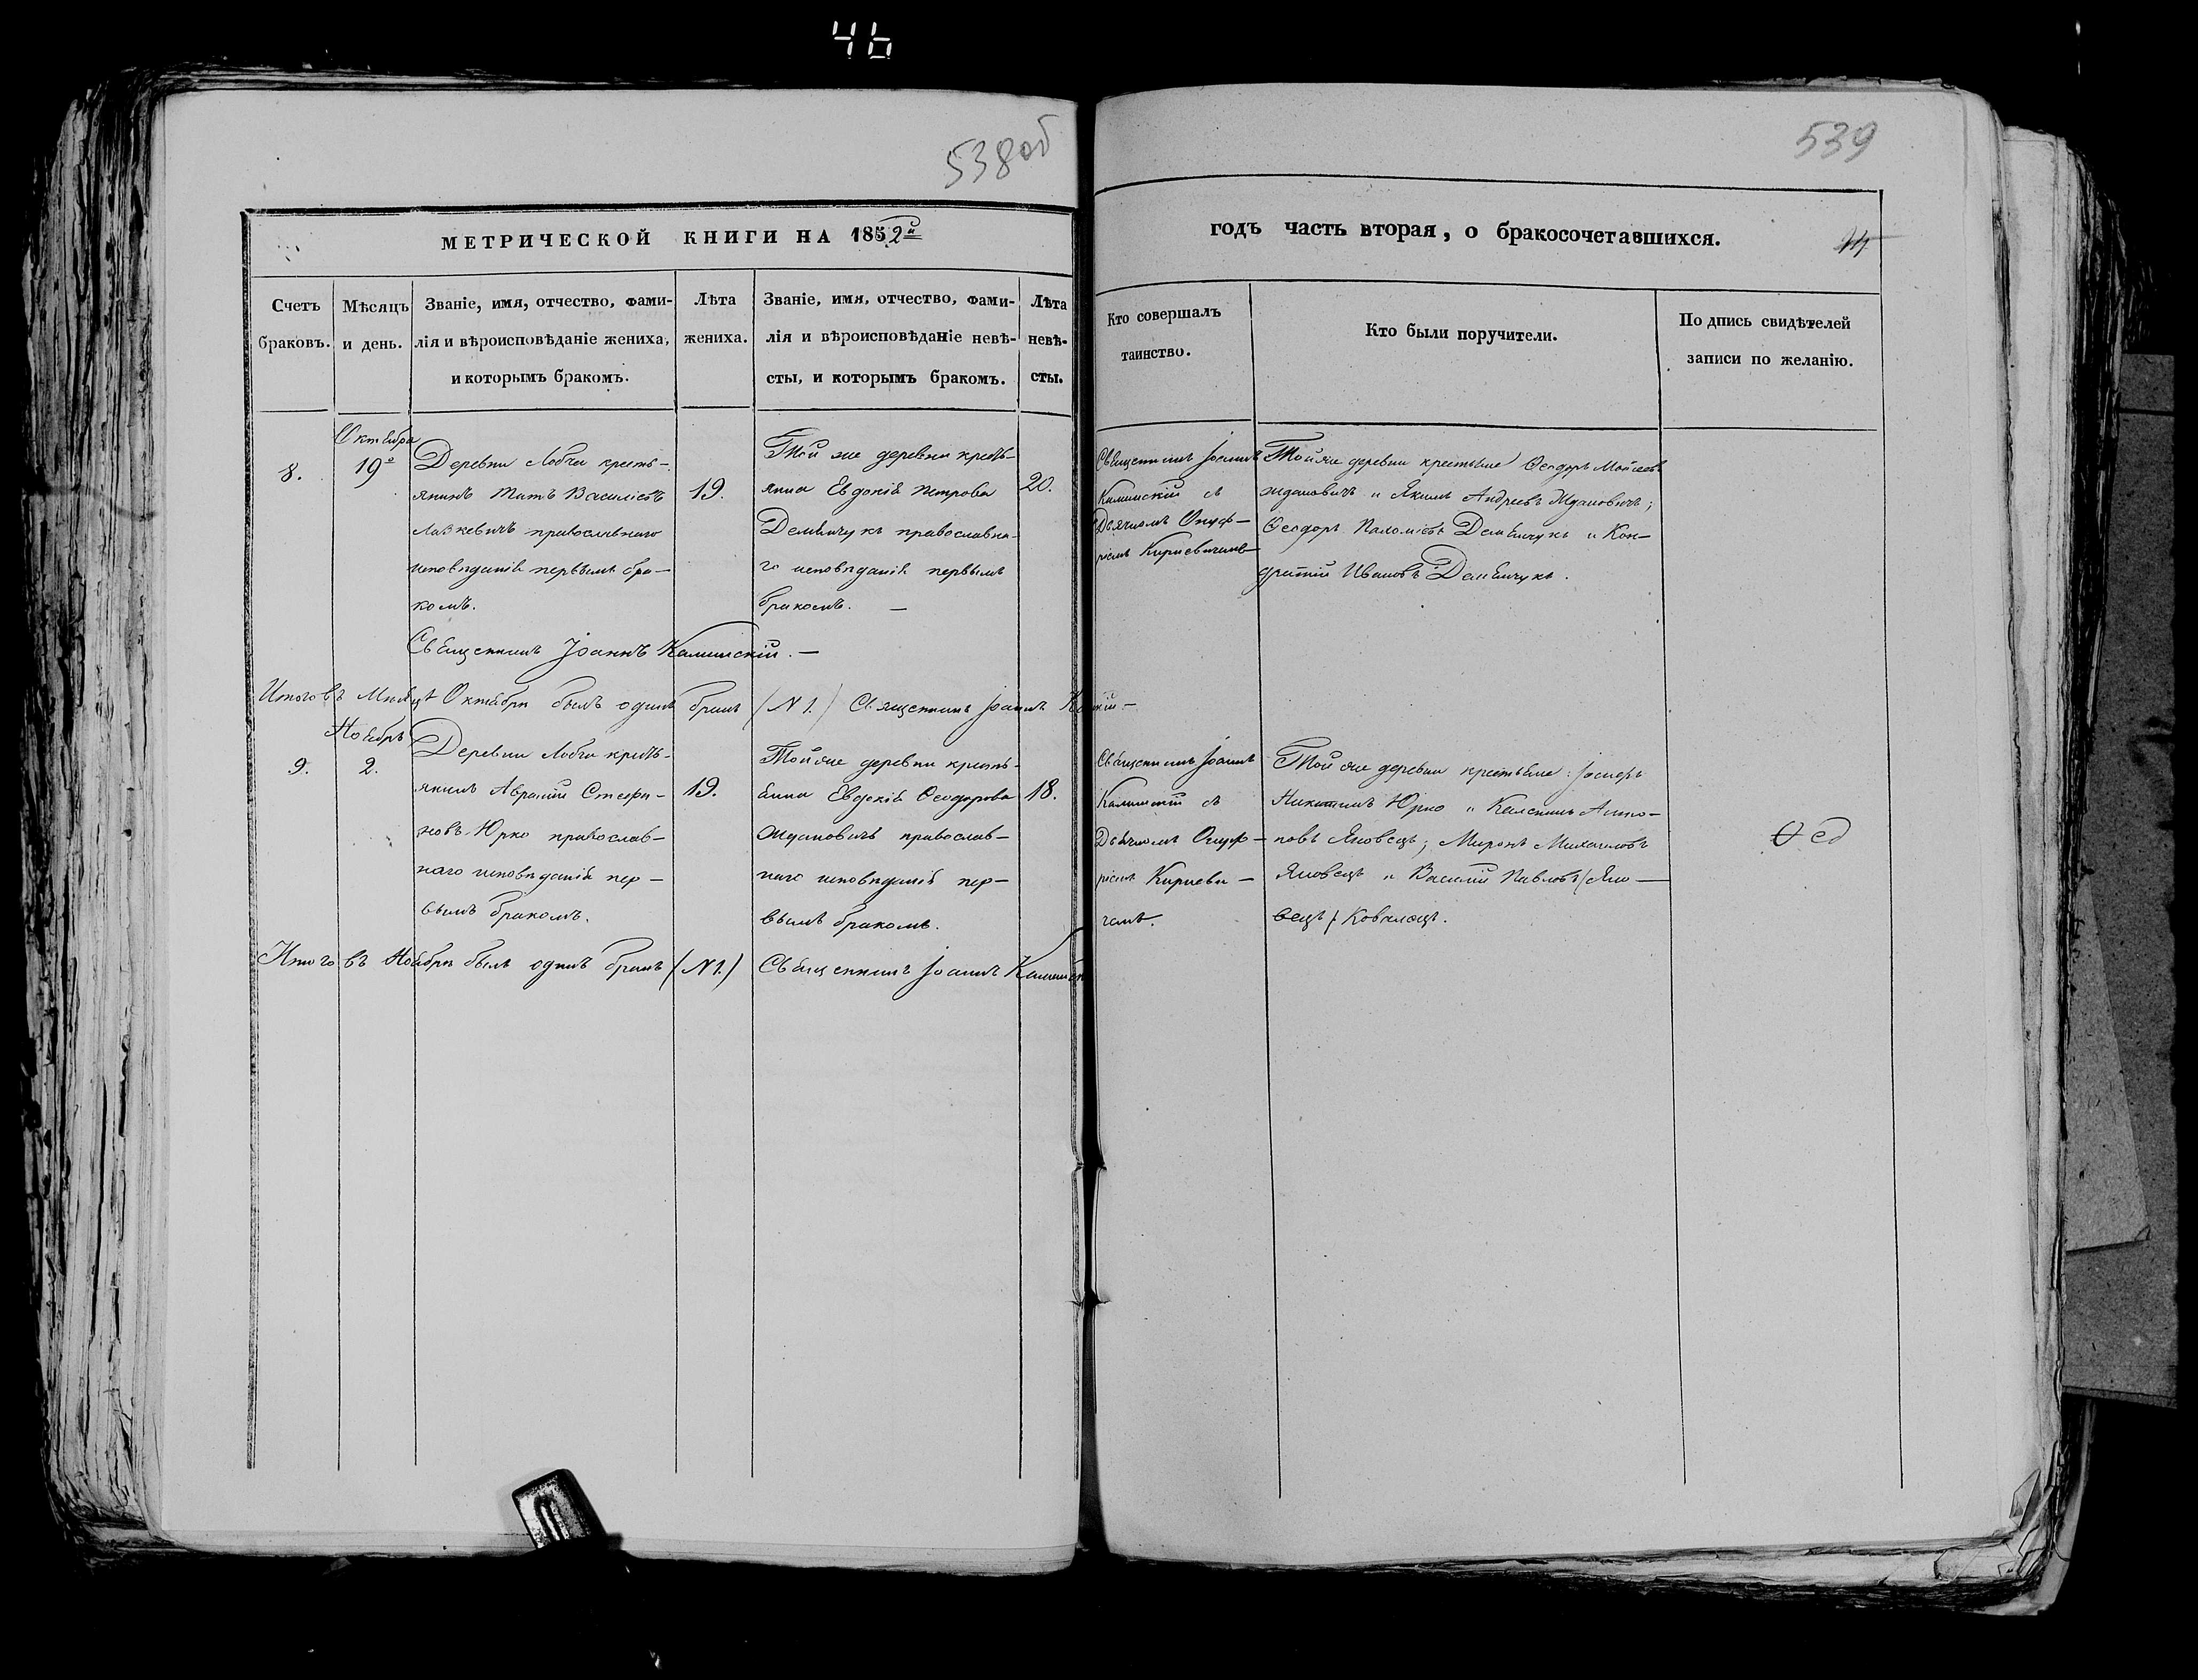 46
538 об
539
МЕТРИЧЕСКОЙ КНИГИ НА 1852й
годъ часть вторая, о бракосочетавшихся.
Счетъ
браковъ.
Мѣсяцъ
и день.
Званіе, имя, отчество, фами-
лія и вѣроисповѣданіе жениха,
и которымъ бракомъ.
Лѣта
жениха.
Званіе, имя, отчество, фами-
лія и вѣроисповѣданіе невѣ-
сты, и которымъ бракомъ.
Лѣта
невѣ-
сты.
Кто совершалъ
таинство.
Кто были поручители.
По дпись свидѣтелей
записи по желанію.
8.
Октября
19е
Деревни Лобчи кресть-
янинъ Титъ Василіевъ
Лазкевичъ православнаго
исповѣданія первымъ бра-
комъ.
19.
Той же деревни кресть-
янка Евдокія Петрова
Демьянчукъ православна-
го исповѣданія первымъ
бракомъ. —
20.
Священникъ Іоаннъ
Калинскій съ
Дьячкомъ Онуф-
ріемъ Кириевичемъ
Той же деревни крестьяне Ѳеодоръ Мойсеевъ
Ждановичъ и Якимъ Андреевъ Ждановичъ;
Ѳеодоръ Пахоміевъ Демьянчукъ и Кон-
дратій Ивановъ Демьянчукъ.
Священникъ Іоаннъ Калинскій. —
Итого въ Мѣсяцѣ Октябрѣ былъ одинъ бракъ (N 1.) Священникъ Іоаннъ
9.
Ноябрь
2.
Деревни Лобчи кресть-
янинъ Авраамій Стефа-
новъ Юрко православ-
наго исповѣданія пер-
вымъ бракомъ.
19.
Той же деревни кресть-
янка Евдокія Ѳеодорова
Ждановичъ православ-
наго исповѣданія пер-
вымъ бракомъ.
18.
Священникъ Іоаннъ
Калинскій съ
Дьячкомъ Онуф-
ріемъ Кириеви-
чемъ.
Той же деревни крестьяне: Іосифъ
Никитинъ Юрко и Антo-
новъ Яновецъ; Миронъ Михаиловъ
Яновецъ и Василій Павловъ (Яно-
вецъ) Ковалецъ.
Итого въ Ноябрѣ былъ одинъ бракъ (N 1.) Священникъ Іоаннъ Калинскій